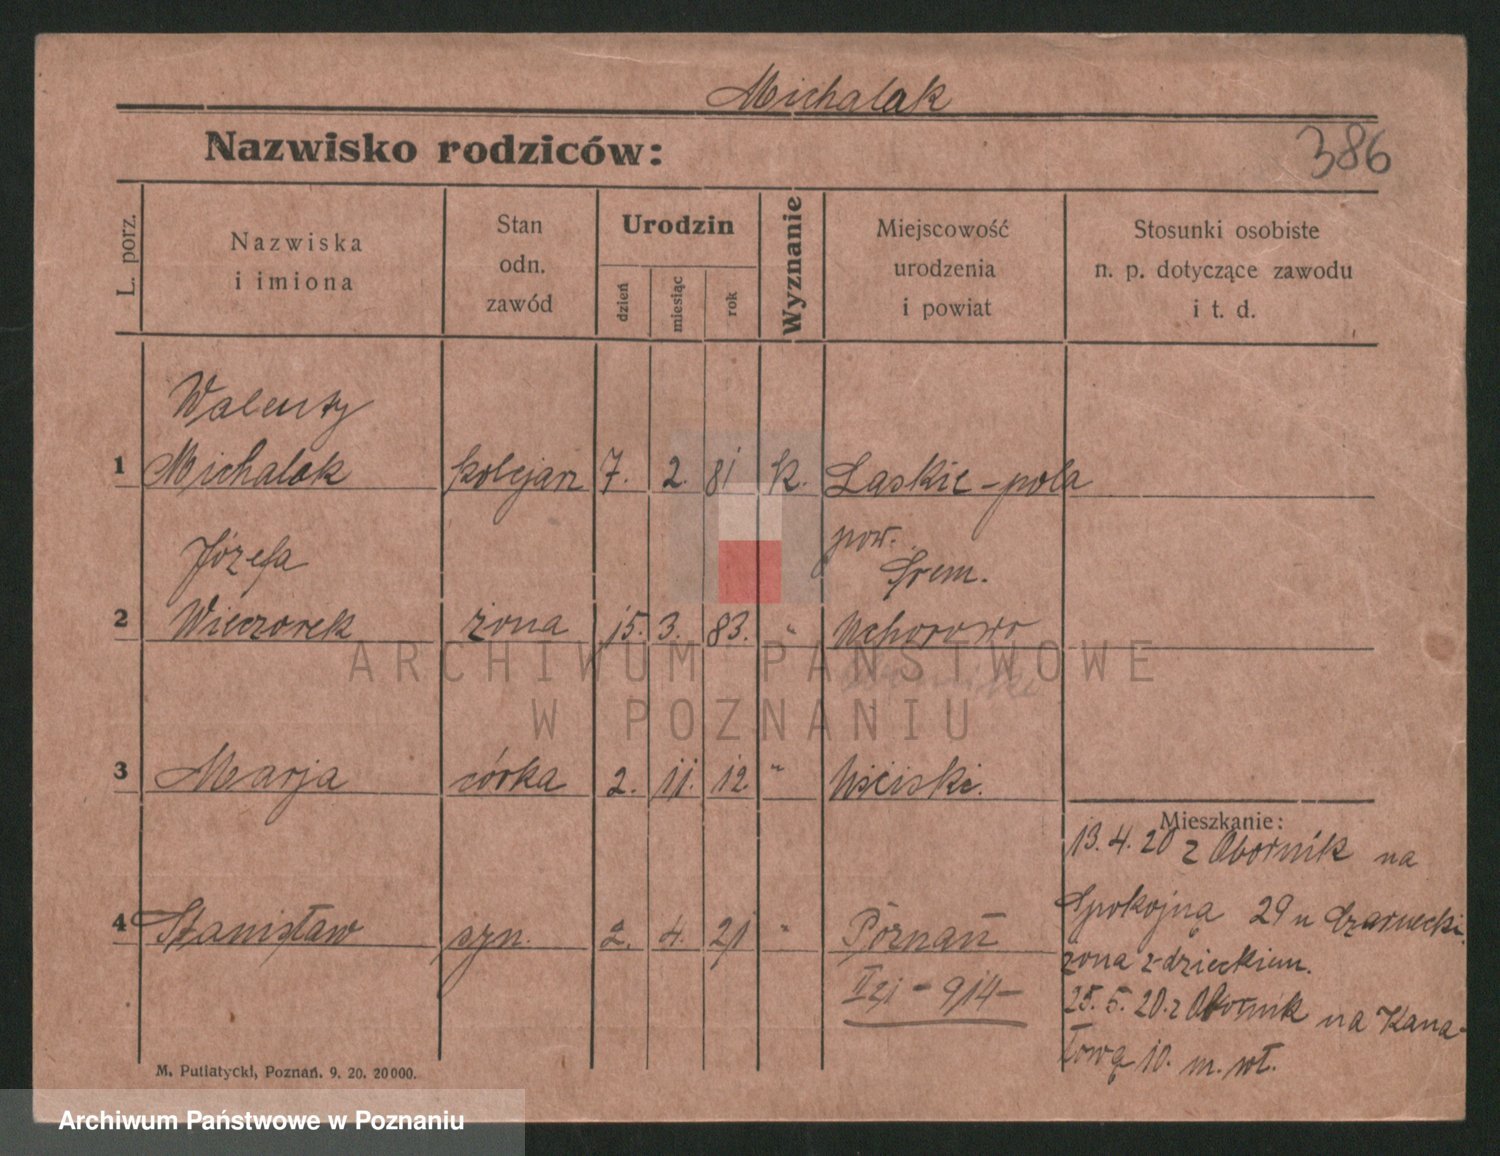 Michalak
Nazwisko rodziców:
386
L. porz.
Nazwiska
i imiona
Stan
odn.
zawód
Urodzin
dzień
miesiąc
rok
Wyznanie
Miejscowość
urodzenia
i powiat
Stosunki osobiste
n. p. dotyczące zawodu
i t. d.
Walenty
1 Michalak kolejarz 7. 2. 81 k. Laskie-pola
pow.
Śrem.
Józefa
2 Wieczorek żona 15. 3. 83. " Uchorowo
3 Marja córka 2. 11. 12 " Uściski.
4 Stanisław syn. 2. 4. 21 " Poznań
II 21 - 914 -
Mieszkanie:
13. 4. 20 z Obornik na
Spokojną 29 u Czarnecki
żona z dzieckiem.
25. 5. 20. z Obornik na Kana-
łową 10. m. wł.
M. Putiatycki, Poznań. 9. 20. 20000.
ARCHIWUM PAŃSTWOWE
W POZNANIU
Archiwum Państwowe w Poznaniu